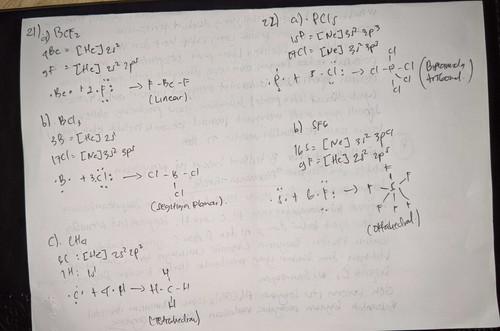 21) a) BeF₂
4Be = [He] 2s²
9F = [He] 2s² 2p⁵
·Be· + 2·F: → F - Be - F
(Linear)
b) BCl₃
3B = [He] 2s
17Cl = [Ne] 3s² 3p⁵
·B· + 3·Cl: → Cl - B - Cl
Cl
c). CH₄
6C : [He] 2s² 2p²
1H : 1s¹
·C· + 4·H → H - C - H
H
H
(Tetrahedral)
22) a). PCl₅
15P = [Ne] 3s² 3p³
17Cl = [Ne] 3s² 3p⁵
·P· + 5·Cl: → Cl - P - Cl
Cl
Cl
Cl
b) SF₆
16S = [Ne] 3s² 3p⁴
9F = [He] 2s² 2p⁵
·S· + 6·F: → F S F
F
F
F
F
(Oktahedral)